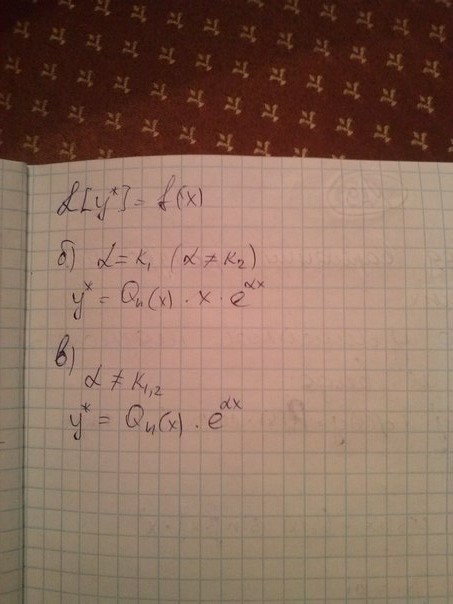 L[y*] = f(x)
б) α = k₁ (α ≠ k₂)
y* = Qₙ(x) · x · e^αx
в)
α ≠ k₁,₂
y* = Qₙ(x) · e^αx